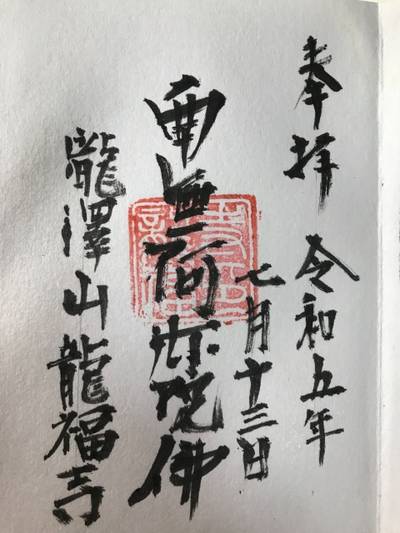 奉拝 令和五年
七月十三日
南無阿弥陀佛
瀧澤山龍福寺